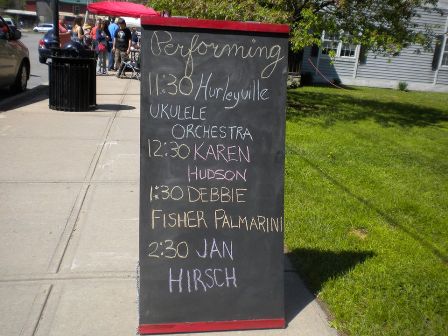 Performing
11:30 Hurleyville
UKULELE
ORCHESTRA
12:30 KAREN
HUDSON
1:30 DEBBIE
FISHER PALMARINI
2:30 JAN
HIRSCH